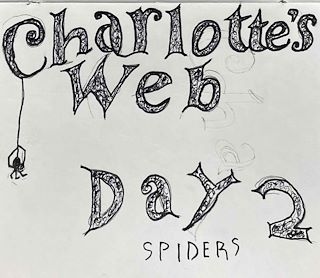 Charlotte's
Web
Day 2
SPIDERS